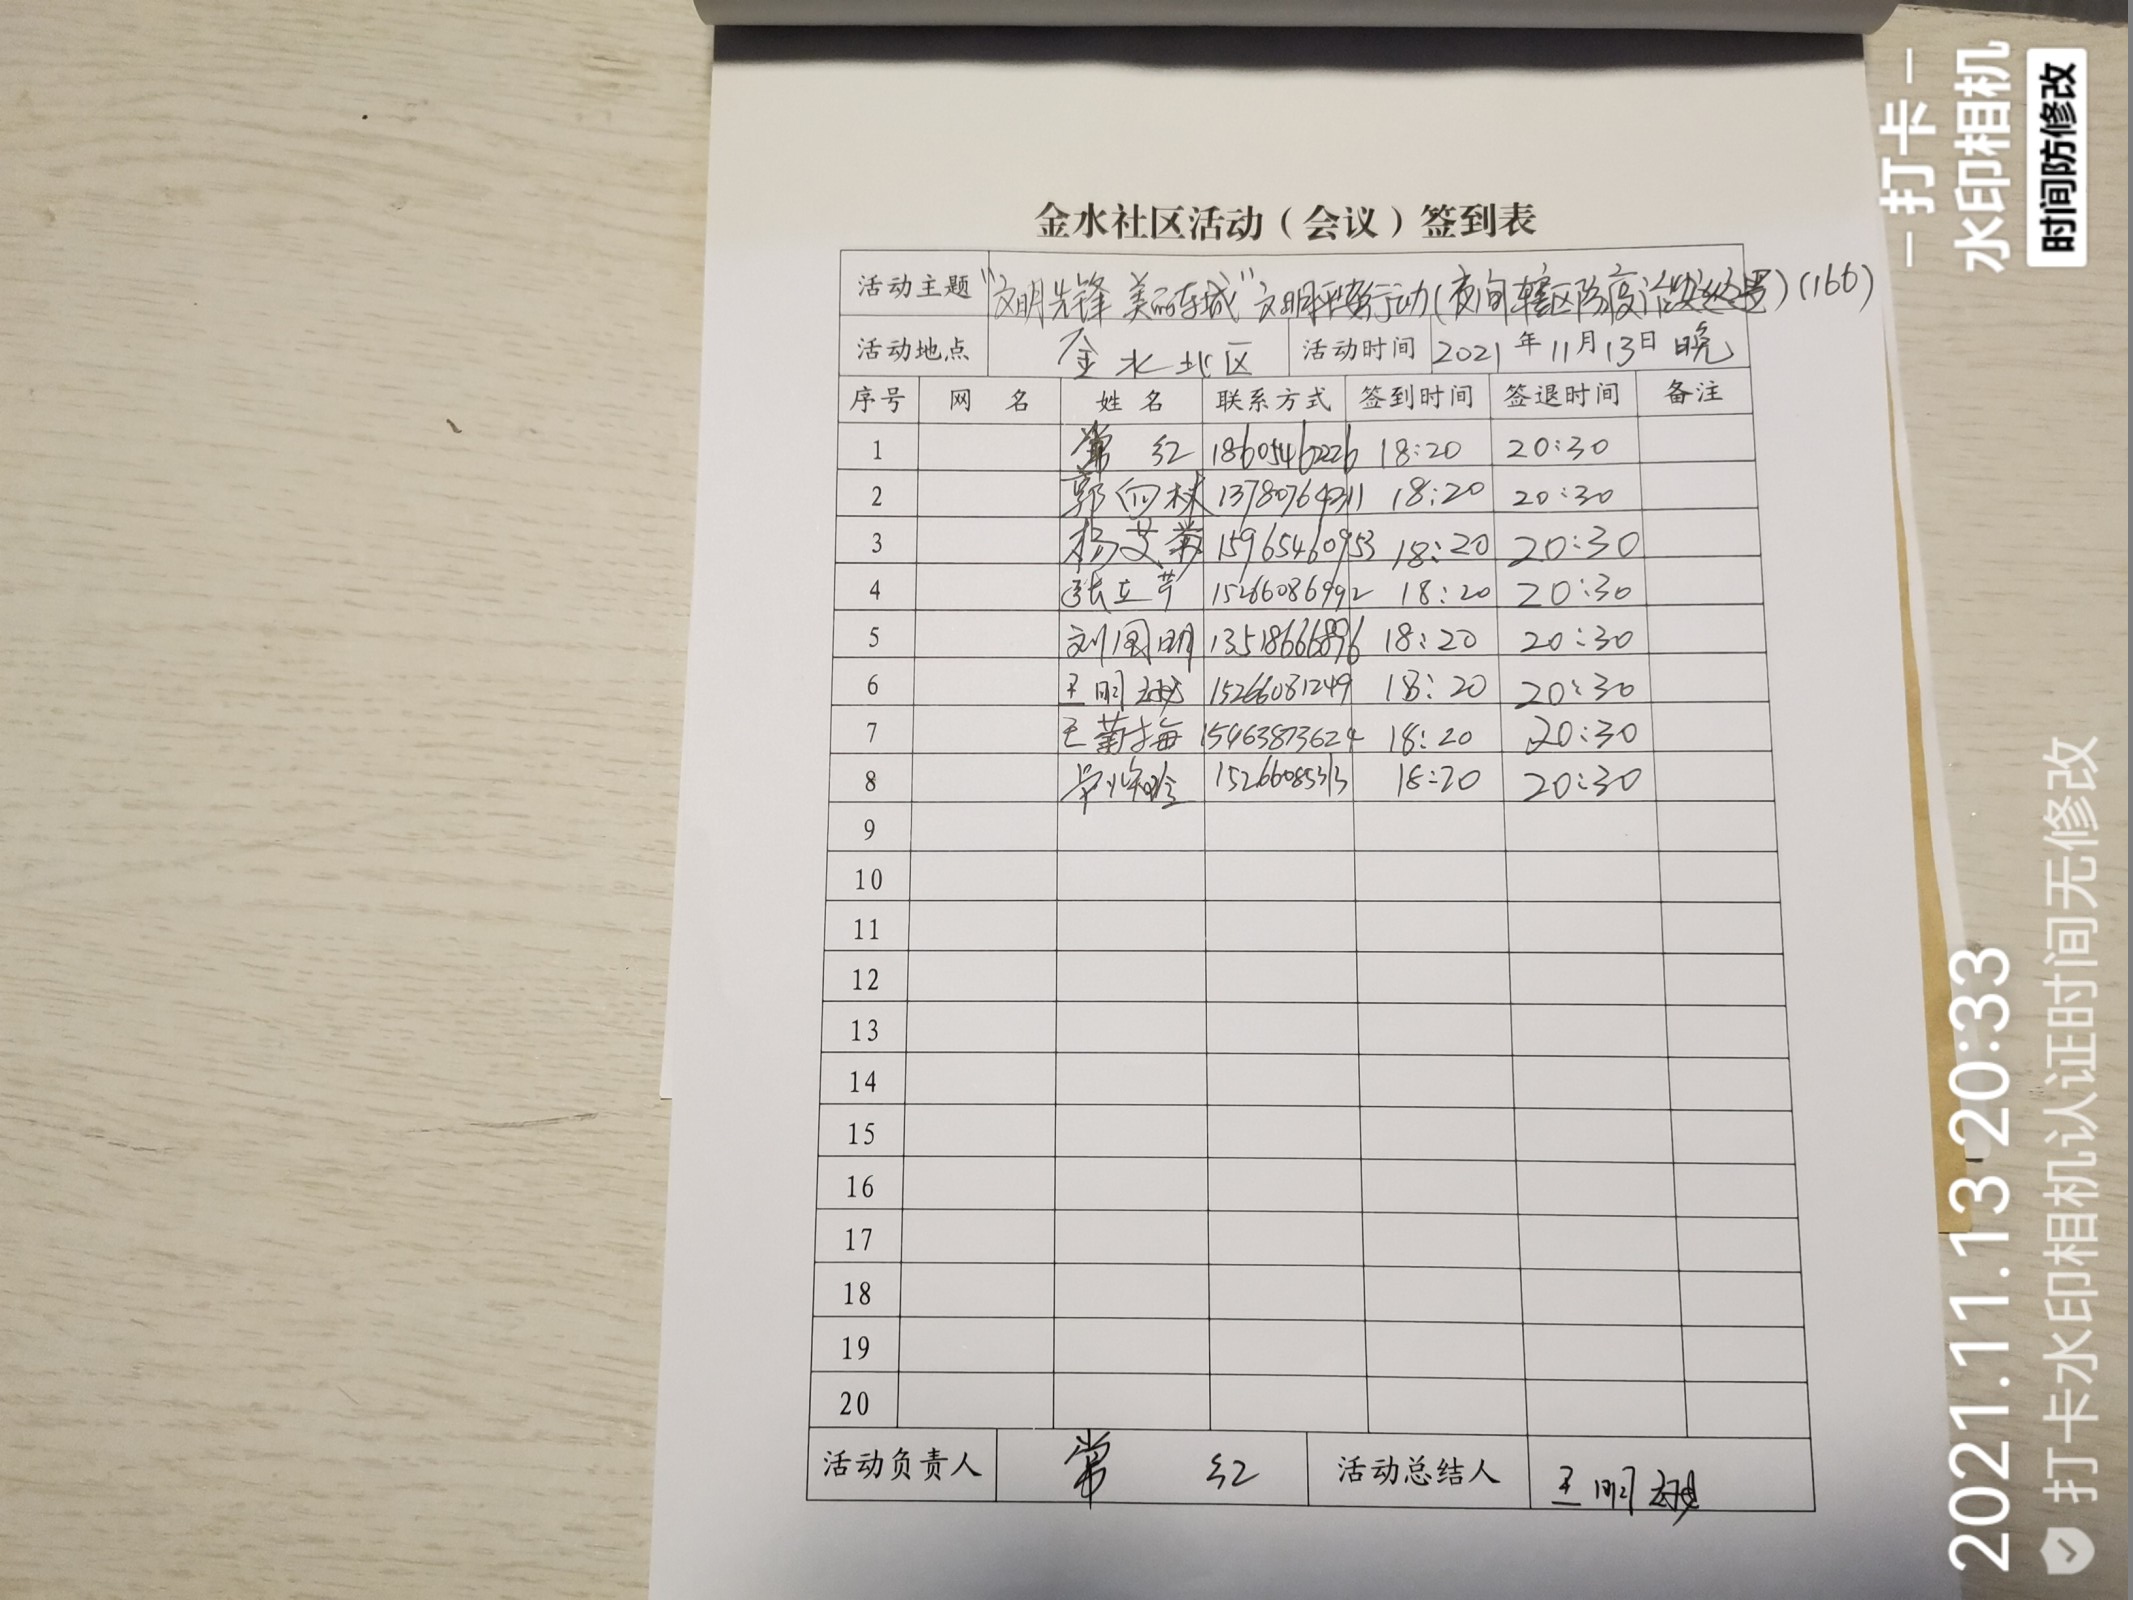 金水社区活动（会议）签到表
活动主题 "文明先锋 美丽东城" 文明平安行动(夜间辖区防疫治安巡逻)(166)
活动地点 金水北区 活动时间 2021年11月13日晚
序号 网 名 姓 名 联系方式 签到时间 签退时间 备注
1 常 红 18605462226 18:20 20:30
2 郭向林 13780764311 18:20 20:30
3 杨艾菊 15965460953 18:20 20:30
4 张立芹 15266086992 18:20 20:30
5 刘国明 13518666896 18:20 20:30
6 王明 15266081249 18:20 20:30
7 王菊梅 15463873624 18:20 20:30
8 15266085313 18:20 20:30
9
10
11
12
13
14
15
16
17
18
19
20
活动负责人 常 红 活动总结人 王明
打卡
水印相机
时间防修改
2021.11.13 20:33
打卡水印相机认证时间无修改